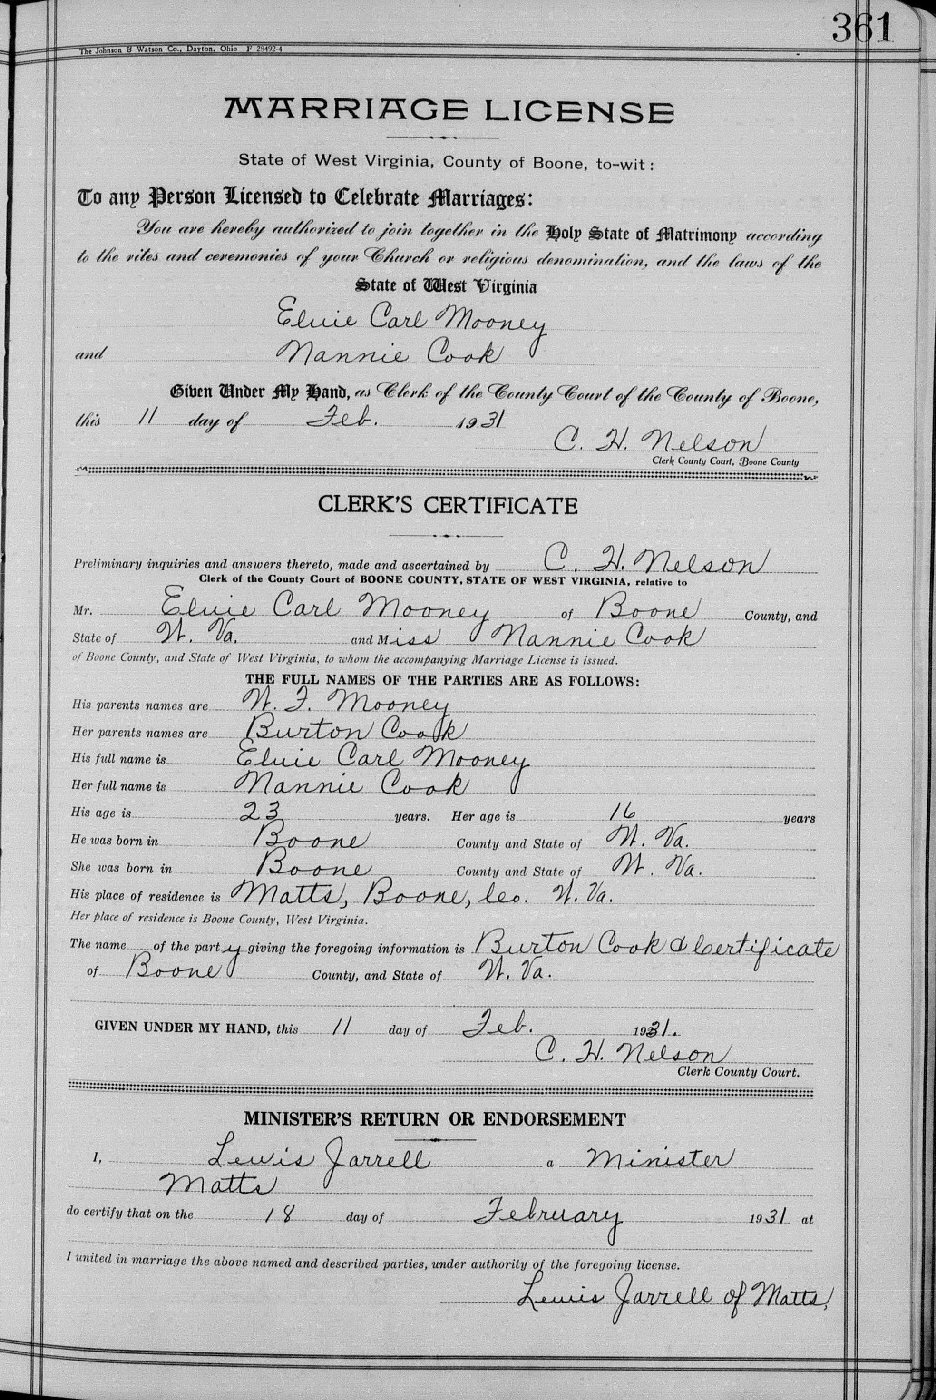 361
The Johnson & Watson Co., Dayton, Ohio F 29492-4
MARRIAGE LICENSE
State of West Virginia, County of Boone, to-wit:
To any Person Licensed to Celebrate Marriages:
You are hereby authorized to join together in the Holy State of Matrimony according
to the rites and ceremonies of your Church or religious denomination, and the laws of the
State of West Virginia
Elvie Carl Mooney
and Nannie Cook
Given Under My Hand, as Clerk of the County Court of the County of Boone,
this 11 day of Feb. 1931
C. H. Nelson
Clerk County Court, Boone County
CLERK'S CERTIFICATE
Preliminary inquiries and answers thereto, made and ascertained by C. H. Nelson
Clerk of the County Court of BOONE COUNTY, STATE OF WEST VIRGINIA, relative to
Mr. Elvie Carl Mooney of Boone County, and
State of W. Va. and Miss Nannie Cook
of Boone County, and State of West Virginia, to whom the accompanying Marriage License is issued.
THE FULL NAMES OF THE PARTIES ARE AS FOLLOWS:
His parents names are W. F. Mooney
Her parents names are Burton Cook
His full name is Elvie Carl Mooney
Her full name is Nannie Cook
His age is 23 years. Her age is 16 years
He was born in Boone County and State of W. Va.
She was born in Boone County and State of W. Va.
His place of residence is Matts, Boone, Co. W. Va.
Her place of residence is Boone County, West Virginia.
The name of the party giving the foregoing information is Burton Cook & Certificate
of Boone County, and State of W. Va.
GIVEN UNDER MY HAND, this 11 day of Feb. 1931.
C. H. Nelson
Clerk County Court.
MINISTER'S RETURN OR ENDORSEMENT
I, Lewis Jarrell a Minister
Matts
do certify that on the 18 day of February 1931 at
I united in marriage the above named and described parties, under authority of the foregoing license.
Lewis Jarrell of Matts,